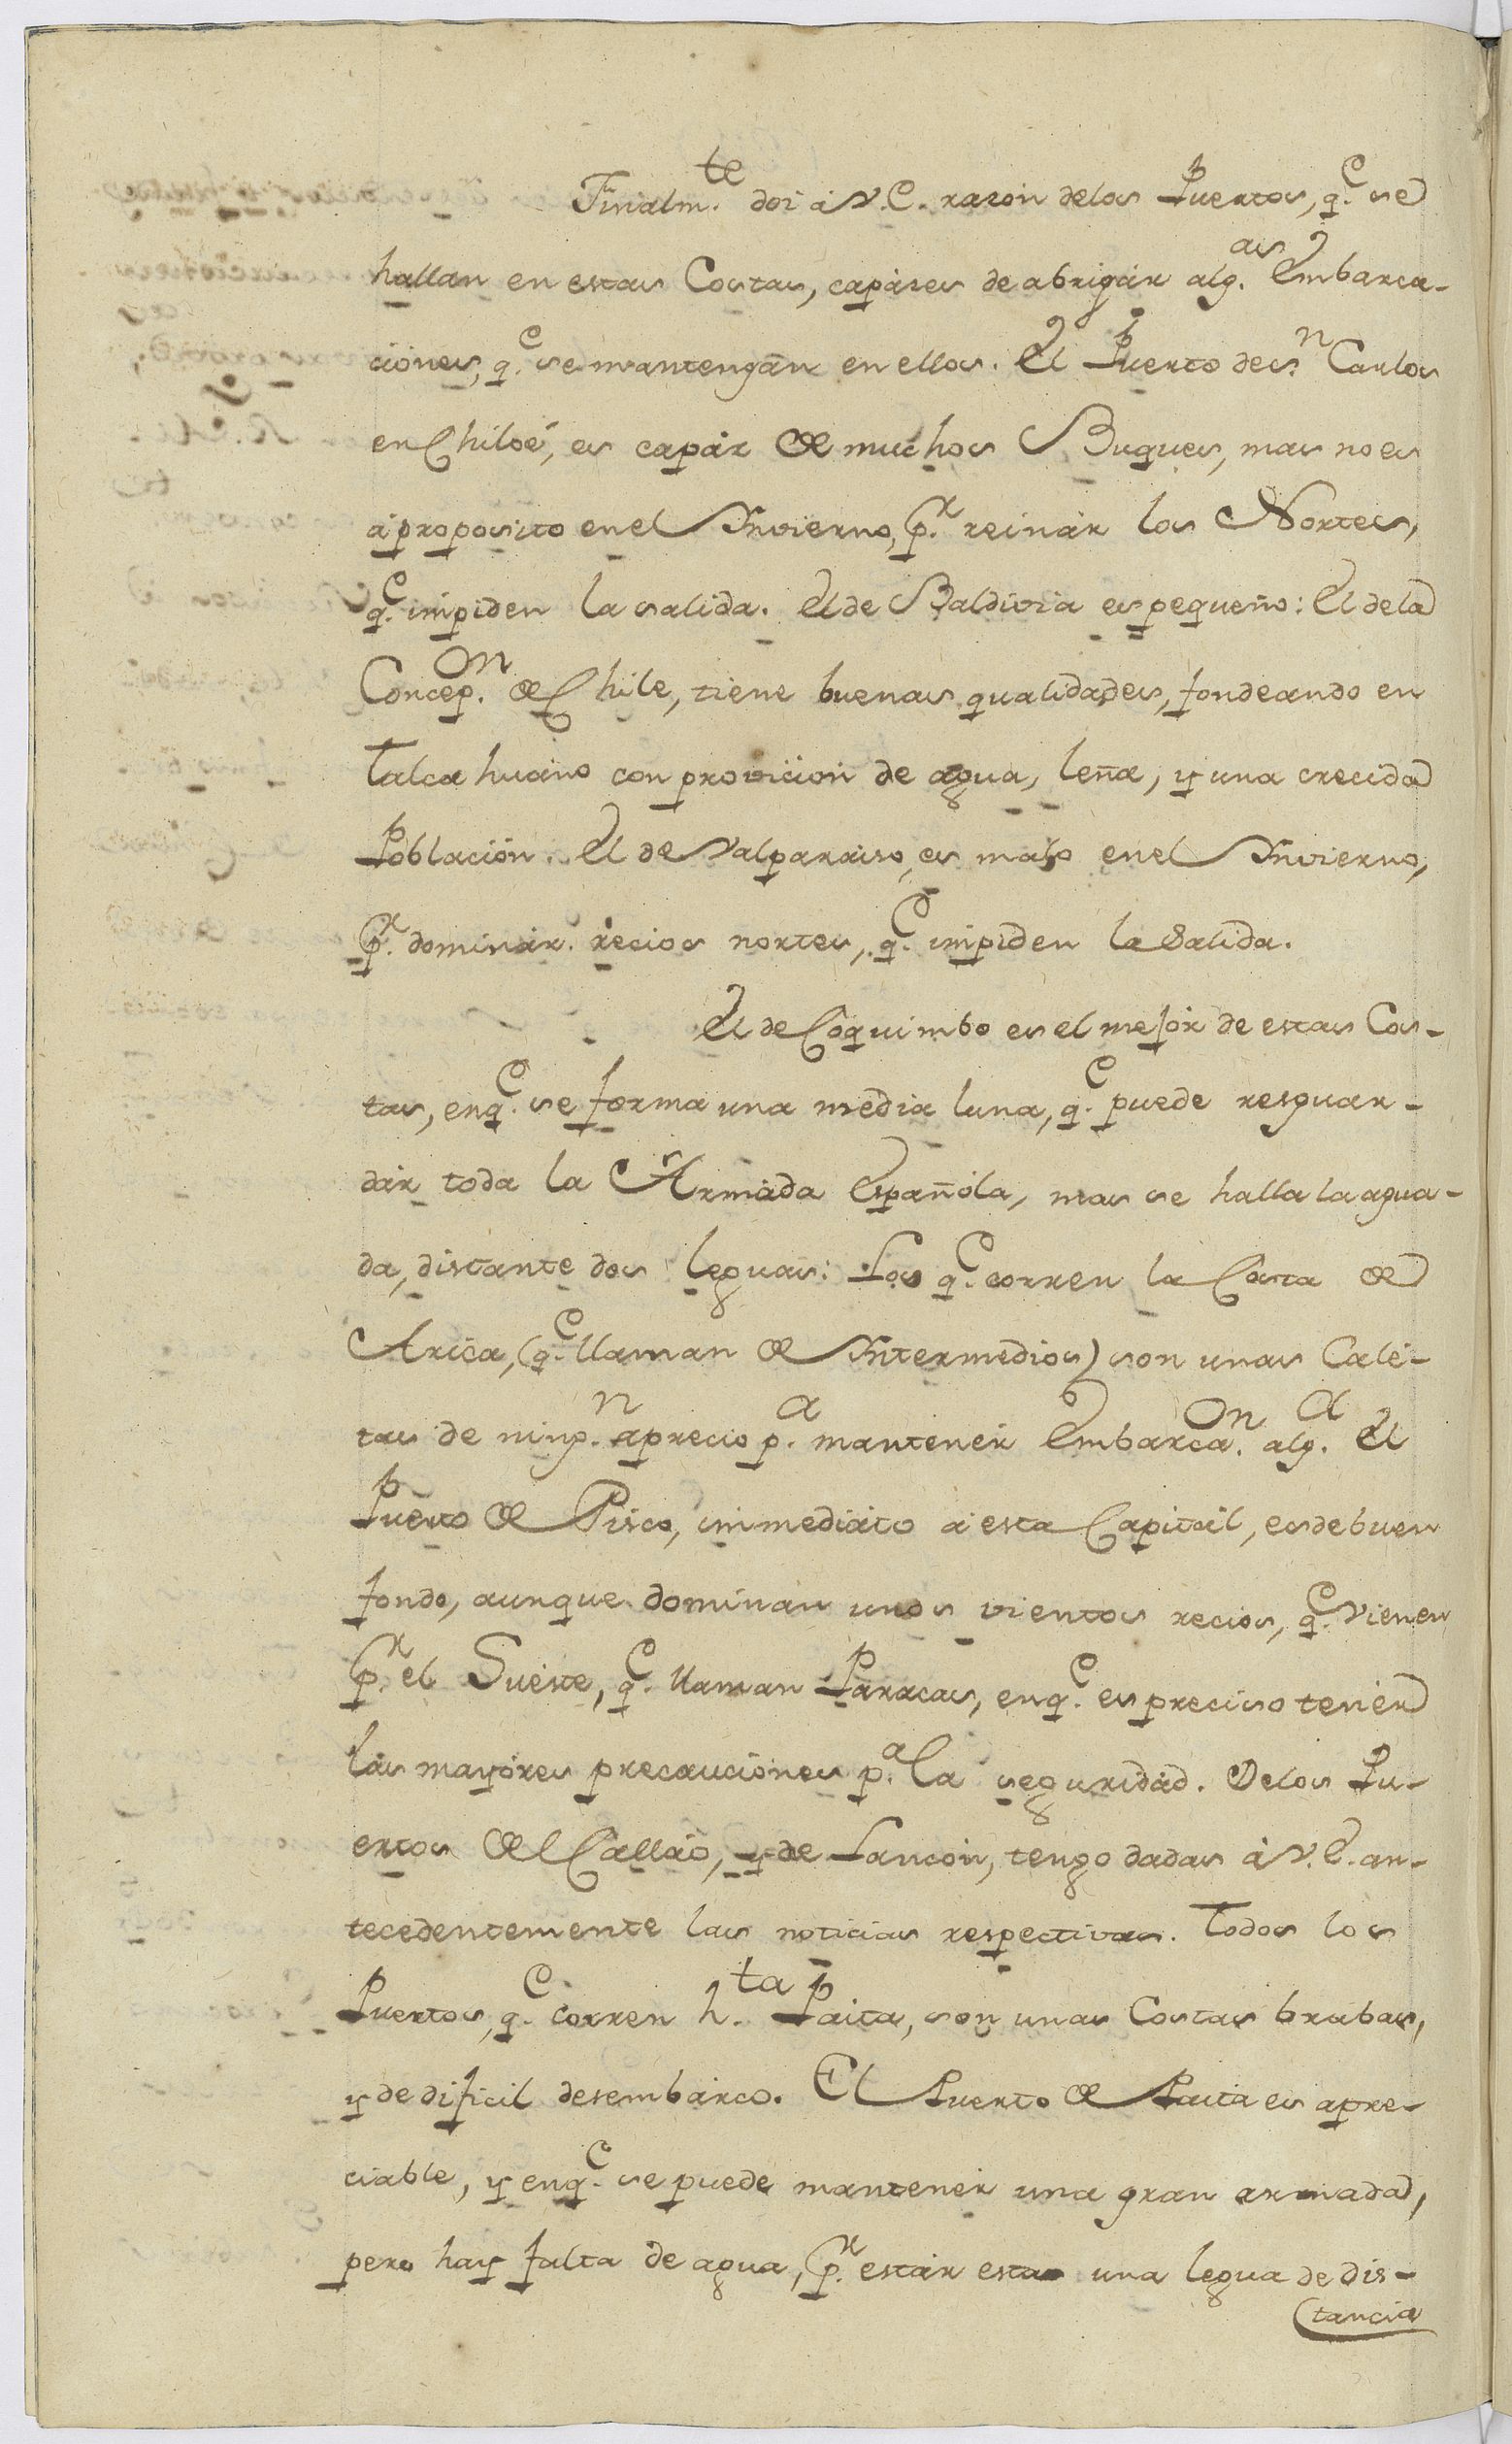 Finalm.te doi à V.E. razon delos Puertos, q.e se
hallan en estas Costas, capáses de abrigár alg.as Embarca-
ciónes, q.e se mantengan en ellos. El Puerto de S.n Carlos
en Chiloé, es capáz de muchos Buques, mas no es
á proposito en el Invierno, p.r reinár los Nortes,
q.e impiden la salida. El de Baldivia es pequeño: El de la
Concep.on de Chile, tiene buenas qualidades, fondeando en
Talcahuano con provicion de agua, leña, y una crecida
Población. El de Valparaiso, es malo en el Invierno,
p.r dominár recios nortes, q.e impiden la Salida.
El de Coquimbo es el mejór de estas Cos-
tas, en q.e se forma una média luna, q.e puede resguar-
dár toda la Armáda Española, mas se halla la agua-
da, distante dos leguas: Los q.e corren la Costa de
Arica, (q.e llaman de Intermedios) son unas Calé-
tas de ning.n aprecio p.a mantenér Embarca.on alg.a El
Puerto de Pisco, inmediáto á esta Capitál, es de buen
fondo, aunque dominan unos vientos recios, q.e vienen
p.r el Sueste, q.e llaman Paracas, en q.e es preciso tenér
las mayóres precauciónes p.a la seguridád. De los Pu-
ertos del Calláo, y de Lancón, tengo dadas á V.E. an-
tecedentemente las noticias respectivas. Todos los
Puertos, q.e corren h.ta Paita, son unas Costas brabas,
y de dificil desembárco. El Puerto de Paita es apre-
ciable, y en q.e se puede mantenér una gran armada,
pero hay falta de agua, p.r estár esta una legua de dis-
tancia